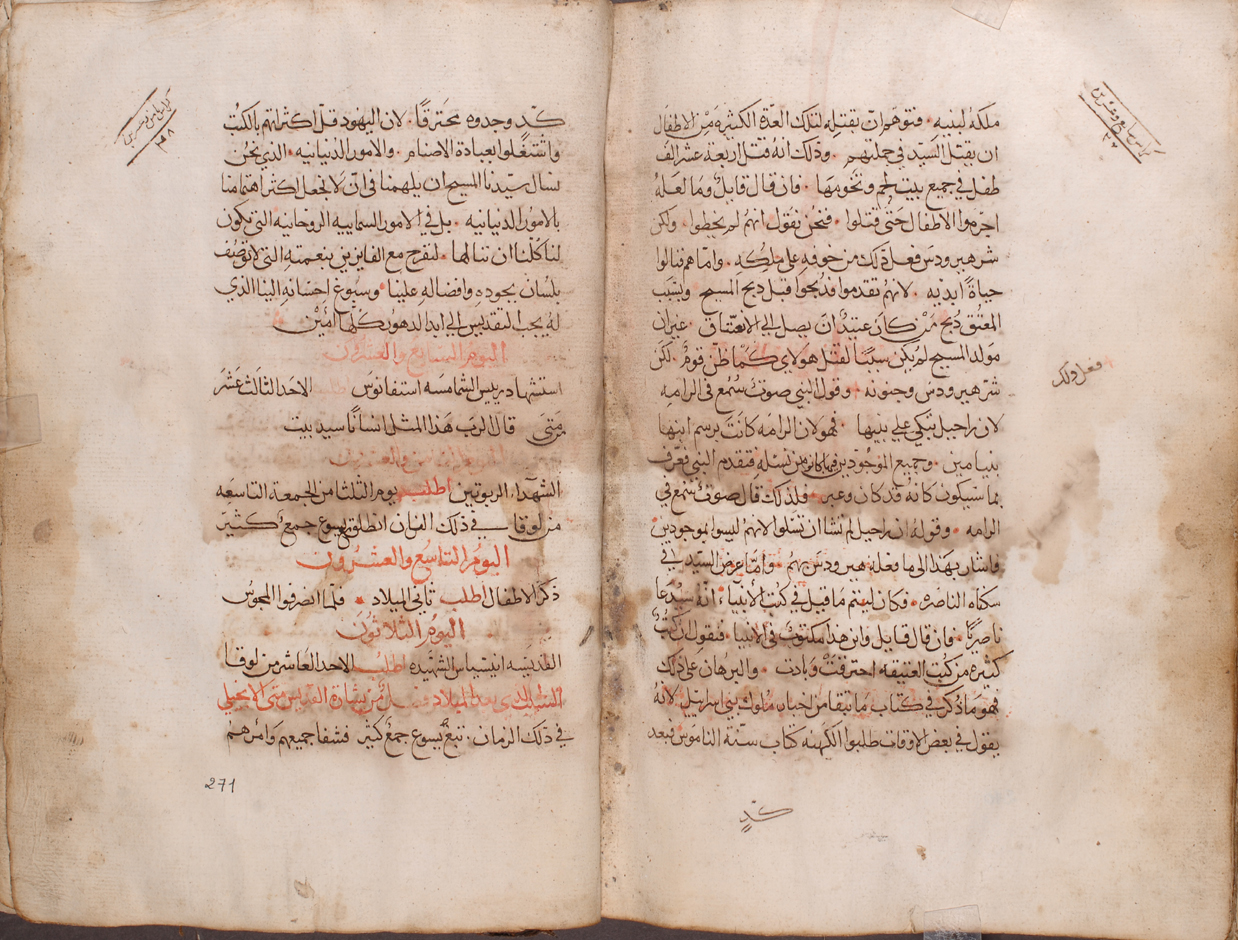 كراس سابع وعشرين
ملكه لبنيه. فتوهم ان بقتله لتلك العدة الكثيرة من الاطفال
ان يقتل السيد في جملتهم. وذلك انه قتل اربعة عشر الف
طفل في جميع بيت لحم وتخومها. وان قال قايل وما لعله
اجرموا الاطفال حتى قتلوا. فنحن نقول انهم لم يخطوا. ولكن
شر هيرودس فعل ذلك من خوفه على ملكه. واما هم فنالوا
حياة ابديه. لانهم تقدموا فدبحوا قبل دبح المسيح وبسبب
المعتق دبح من كان عتيدًا ان يصل الى الانعتاق غير ان
مولد المسيح لم يكن سببًا لقتل هولاي كما ظن قوم. لكن
شر هيرودس وجنونه. وقول النبي صوت سمع في الرامه
فعل ذلك
لان راحيل تبكي على بنيها. فهو لان الرامه كانت برسم ابنها
بنيامين. وجميع الموجودين فيها كانو من نسله فتقدم النبي فعرف
بما سيكون كانه قد كان وعبر. فلذلك قال صوت سمع في
الرامه. وقوله ان راحيل لم تشا ان تسلوا لانهم ليسوا بموجودين
فاشار بهذا الى ما فعله هيرودس بهم. واما عرض السيد في
سكناه الناصره. فكان ليتم ما قيل في كتب الانبياء انه سيدعا
ناصريًا. فان قال قايل واين هذا مكتوب في الانبيا فنقول ان كتب
كثيرة من كتب العتيقه احترقت وبادت. والبرهان على ذلك
فهو ما ذكر في كتاب ما تبقا من اخبار ملوك بني اسراييل لانه
يقول في بعض الاوقات طلبوا الكهنه كتاب سنة الناموس فبعد
كدٍ
كراس ثامن وعشرين
كدٍ وجدوه محترقًا. لان اليهود قل اكتراثهم بالكتب
واشتغلوا بعبادة الاصنام. والامور الدنيانيه. الذي نحن
نسال سيدنا المسيح ان يلهمنا في ان لا نجعل اكثر اهتمامنا
بالامور الدنيانيه. بل في الامور السماييه الروحانيه التي يكون
لنا كلنا ان ننالها. لنفرح مع الفايزين بنعمته التي لا توصف
بلسان بجوده وافضاله علينا وسبوغ احسانه الينا الذي
له يجب التقديس الى ابد الدهور كلها امين
اليوم السابع والعشرون
استشهاد رييس الشمامسه استفانوس اطلب الاحد الثالث عشر
من متى قال الرب هذا المثل انسانًا سيد بيت
اليوم الثامن والعشرون
الشهدا الربوتين اطلب يوم الثلثا من الجمعة التاسعه
من لوقا في ذلك الزمان انطلق يسوع جمع كثير
اليوم التاسع والعشرون
ذكر الاطفال اطلب ثاني الميلاد. فلما انصرفوا المجوس
اليوم الثلاثون
القديسه انيسيا الشهيده اطلب الاحد العاشر من لوقا
السبت الذي بعد الميلاد فصل من بشارة القديس متى الانجيلي
في ذلك الزمان: تبع يسوع جمع كثير فشفا جميعهم وامرهم
271